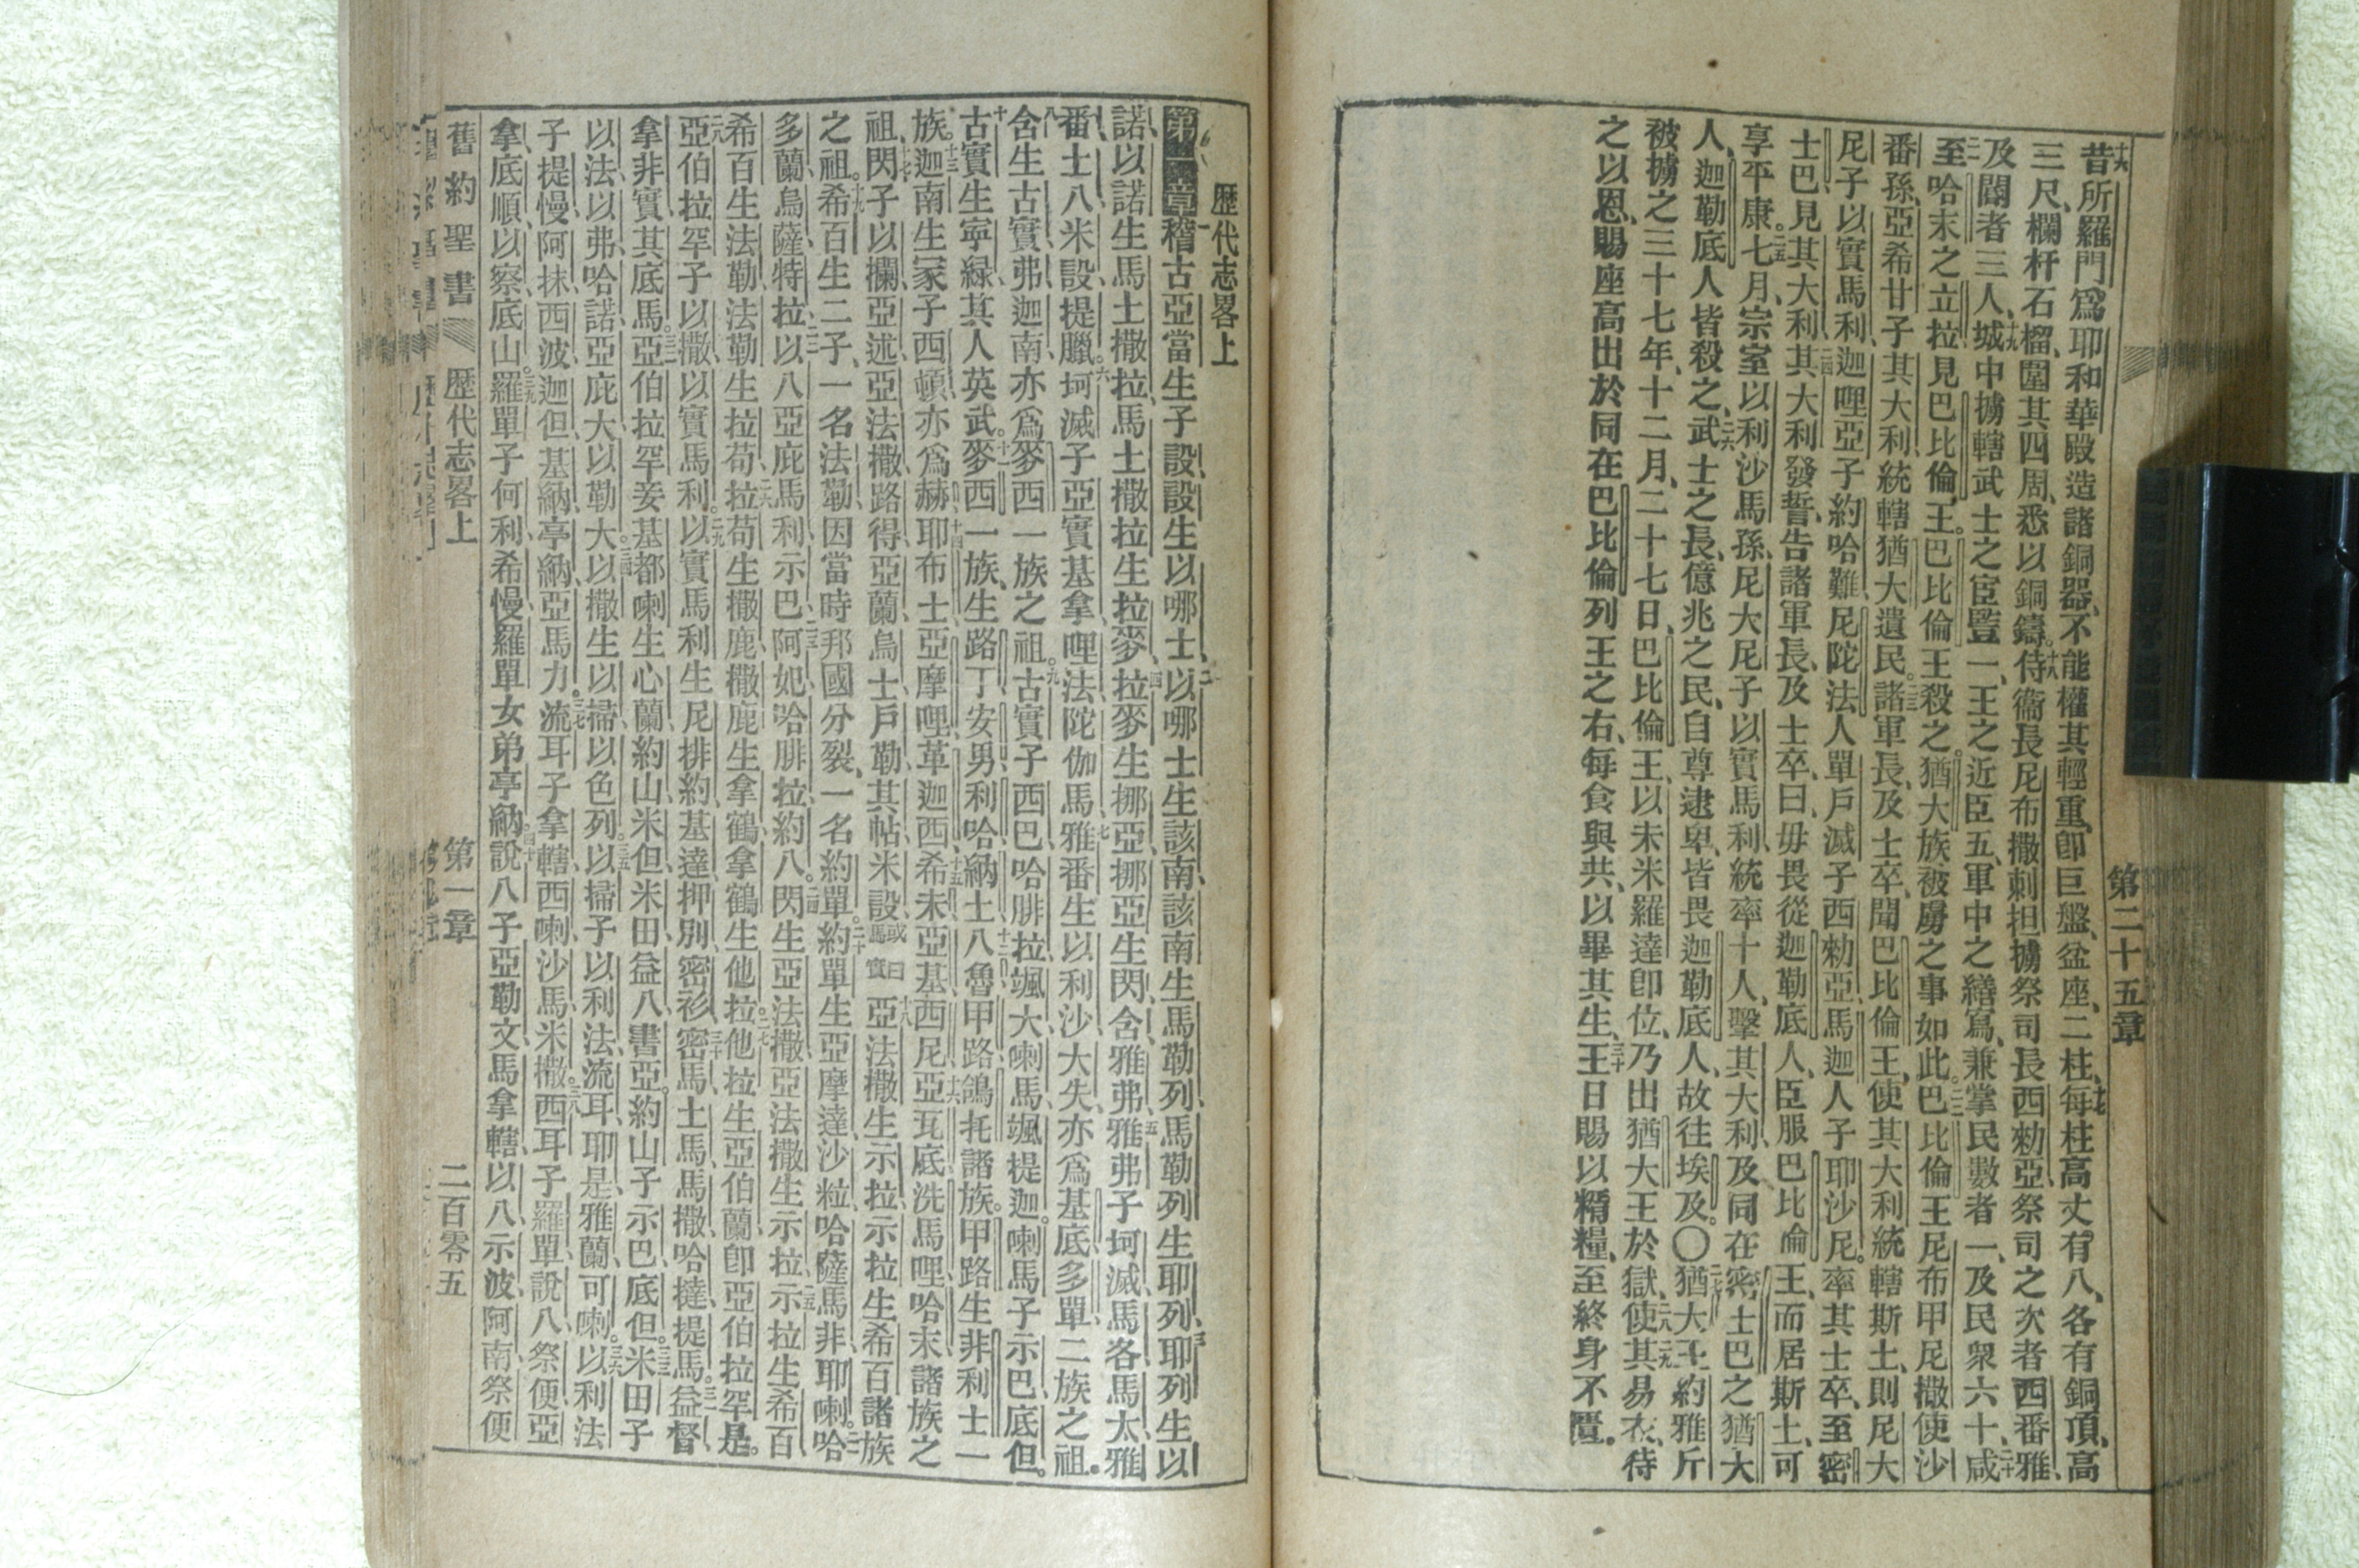 第二十五章
昔所羅門爲耶和華殿造諸銅器、不能權其輕重、卽巨盤、盆座、二柱、每柱高丈有八、各有銅頂、高
三尺、欄杆石榴、圍其四周、悉以銅鑄。侍衞長尼布撒剌担擄祭司長西勑亞祭司之次者西番雅、
及閽者三人、城中擄轄武士之宦豎一、王之近臣五、軍中之繕寫、兼掌民數者一、及民衆六十、咸
至哈末之立拉見巴比倫王。巴比倫王殺之。猶大族被虜之事如此。巴比倫王尼布甲尼撒使沙
番孫、亞希甘子其大利統轄猶大遺民。諸軍長、及士卒、聞巴比倫王、使其大利統轄斯土、則尼大
尼子以實馬利、迦哩亞子約哈難、尼陀法人單戶滅子西勑亞、馬迦人子耶沙尼。率其士卒、至密
士巴見其大利、其大利發誓、告諸軍長、及士卒、曰、毋畏從迦勒底人、臣服巴比倫王、而居斯土、可
享平康。七月、宗室以利沙馬孫、尼大尼子以實馬利、統率十人、擊其大利、及同在密士巴之猶大
人、迦勒底人皆殺之、武士之長、億兆之民、自尊逮卑、皆畏迦勒底人、故往埃及。〇猶大王約雅斤
被擄之三十七年、十二月、二十七日、巴比倫王以未米羅達卽位、乃出猶大王於獄、使其易衣、待
之以恩、賜座高出於同在巴比倫列王之右、每食與共、以畢其生、王日賜以糈糧、至終身不匱。
歷代志畧上
第一章稽古亞當生子設、設生以哪士、以哪士生該南、該南生馬勒列、馬勒列生耶列、耶列生以
諾、以諾生馬土撒拉、馬土撒拉生拉麥、拉麥生挪亞、挪亞生閃、含、雅弗、雅弗子坷滅、馬各、馬太、雅
番、土八、米設、提臘、坷滅子亞實基拿、哩法、陀伽馬、雅番生以利沙、大失、亦爲基底、多單二族之祖。
含生古實、弗、迦南、亦爲麥西一族之祖。古實子西巴、哈腓拉、颯大、喇馬、颯提迦。喇馬子示巴、底但。
古實生寧綠、其人英武。麥西一族、生路丁、安男、利哈、納土八、魯甲路鴿托諸族。甲路生非利士一
族。迦南生冢子西頓、亦爲赫、耶布士、亞摩哩、革迦西、希未、亞基、西尼、亞瓦底、洗馬哩、哈末諸族之
祖、閃子以攔、亞述、亞法撒、路得、亞蘭、烏士、戶勒、其帖、米設或曰馬實亞法撒生示拉、示拉生希百諸族
之祖。希百生二子、一名法勒、因當時邦國分裂、一名約單。約單生亞摩達、沙粒、哈薩馬非、耶喇。哈
多蘭、烏薩、特拉、以八、亞庇馬利、示巴、阿妃、哈腓拉、約八。閃生亞法撒、亞法撒生示拉、示拉生希百
希百生法勒、法勒生拉苟、拉苟生撒鹿、撒鹿生拿鶴、拿鶴生他拉。他拉生亞伯蘭、卽亞伯拉罕是。
亞伯拉罕子以撒、以實馬利。以實馬利生尼排約、基達、押別、密衫、密馬、土馬、馬撒、哈撻、提馬。益督
拿非實、其底馬。亞伯拉罕妾基都喇生心蘭、約山、米但、米田、益八、書亞。約山子示巴、底但。米田子
以法、以弗、哈諾、亞庇大、以勒大。以撒生以掃、以色列。以掃子以利法、流耳、耶是、雅蘭、可喇。以利法
子提慢、阿抹、西波、迦但、基納、亭納、亞馬力。流耳子拿轄、西喇、沙馬、米撒。西耳子羅單、說八、祭便、亞
拿、底順、以察、底山。羅單子何利、希慢、羅單女弟亭納。說八子亞勒文、馬拿轄、以八、示波、阿南、祭便
舊約聖書　歷代志畧上　第一章　二百零五